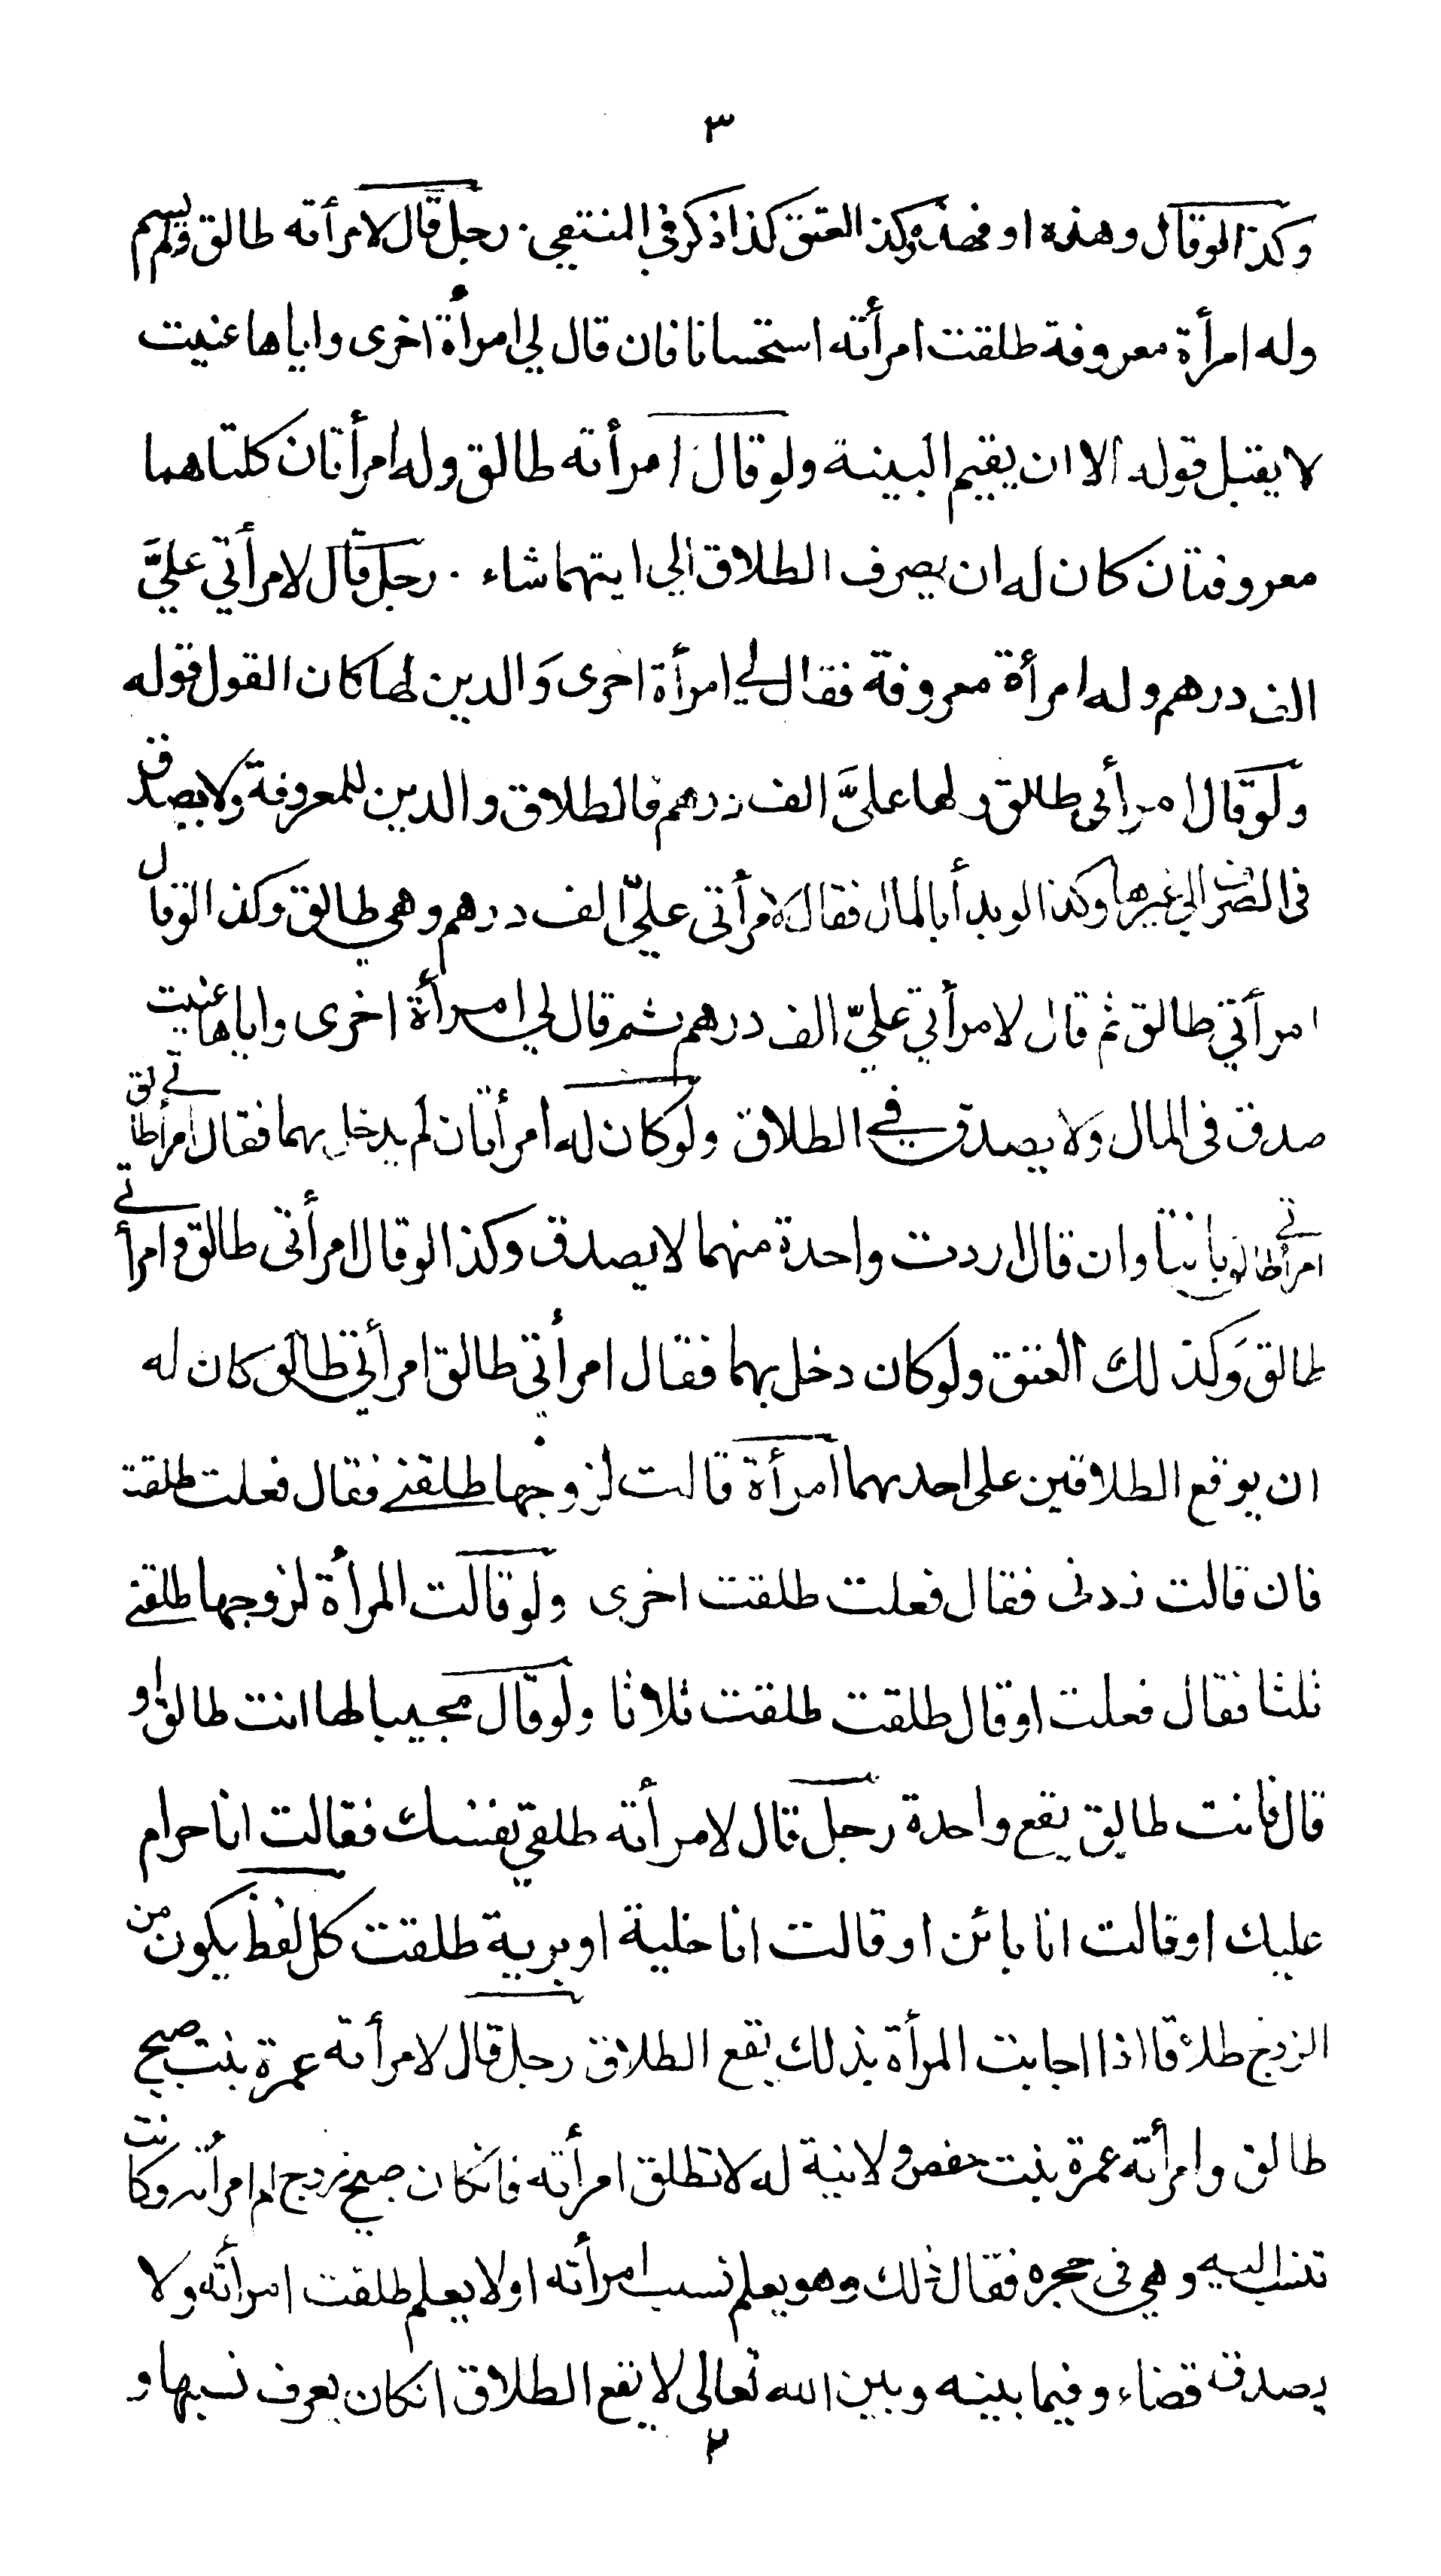 ٣
وكذا لو قال وهذه او فهذه وكذا العتق كذا ذكر في المنتقى . رجل قال لامرأته طالق ولم يسم
وله امرأة معروفة طلقت امرأته استحسانا فان قال لي امرأة اخرى واياها عنيت
لا يقبل قوله الا ان يقيم البينة ولو قال امرأته طالق وله امرأتان كلتاهما
معروفتان كان له ان يصرف الطلاق الي ايتهما شاء . رجل قال لامرأتي عليَّ
الف درهم وله امرأة معروفة فقال لي امرأة اخرى وَالدين لها كان القول قوله
ولو قال امرأتي طالق ولها عليَّ الف درهم فالطلاق والدين للمعروفة ولا يصدق
في الصرف الي غيرها وكذا لو بدأ بالمال فقال لامرأتى عليّ الف درهم وهي طالق وكذا لو قال
امرأتي طالق ثم قال لامرأتي عليّ الف درهم ثم قال لي امرأة اخرى واياها عنيت
صدق في المال ولا يصدق في الطلاق ولو كان له امرأتان لم يدخل بهما فقال امرأتي طالق
امرأتي طالق بانتا وان قال اردت واحدة منهما لا يصدق وكذا لو قال امرأتى طالق وامرأتي
طالق وَكذلك العتق ولو كان دخل بهما فقال امرأتي طالق امرأتي طالق كان له
ان يوقع الطلاقين على احديهما امرأة قالت لزوجها طلقني فقال فعلت طلقت
فان قالت زدنى فقال فعلت طلقت اخرى ولو قالت المرأة لزوجها طلقني
ثلثا فقال فعلت او قال طلقت طلقت ثلاثا ولو قال مجيبا لها انت طالق او
قال فانت طالق يقع واحدة رجل قال لامرأته طلقي نفسك فقالت انا حرام
عليك او قالت انا بائن او قالت انا خلية او برية طلقت كل لفظ يكون من
الزوج طلاقا اذا اجابت المرأة بذلك يقع الطلاق رجل قال لامرأته عمرة بنت صبيح
طالق وامرأته عمرة بنت حفص ولا نية له لا تطلق امرأته فانكان صبيح زوج ام امرأته وكانت
تنسب اليه وهي في حجره فقال ذلك وهو يعلم نسب امرأته او لا يعلم طلقت امرأته ولا
يصدق قضاء وفيما بينه وبين الله تعالى لا يقع الطلاق انكان يعرف نسبها و
٢